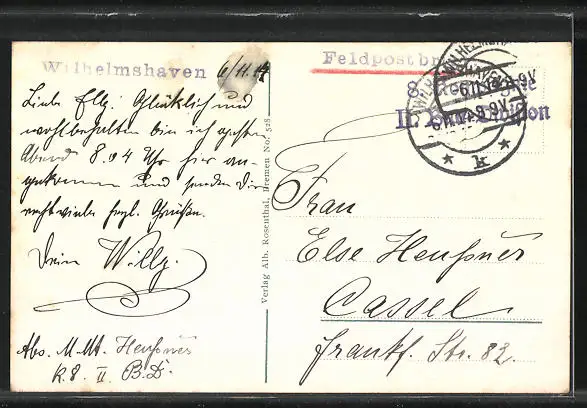 Wilhelmshaven 6/11.14
Liebe Elly! Glücklich und
wohlbehalten bin ich gestern
Abend 8.04 Uhr hier an-
gekommen und sende Dir
recht viele herzl. Grüße.
Dein Willy.
Abs. M. Mt. Heußner
K. 8. II B.D.
Verlag Alb. Rosenthal, Bremen No. 528
Feldpostbr
II.
6.11.
8-9V
* k *
Frau
Else Heußner
Cassel
Frankf. Str. 82.